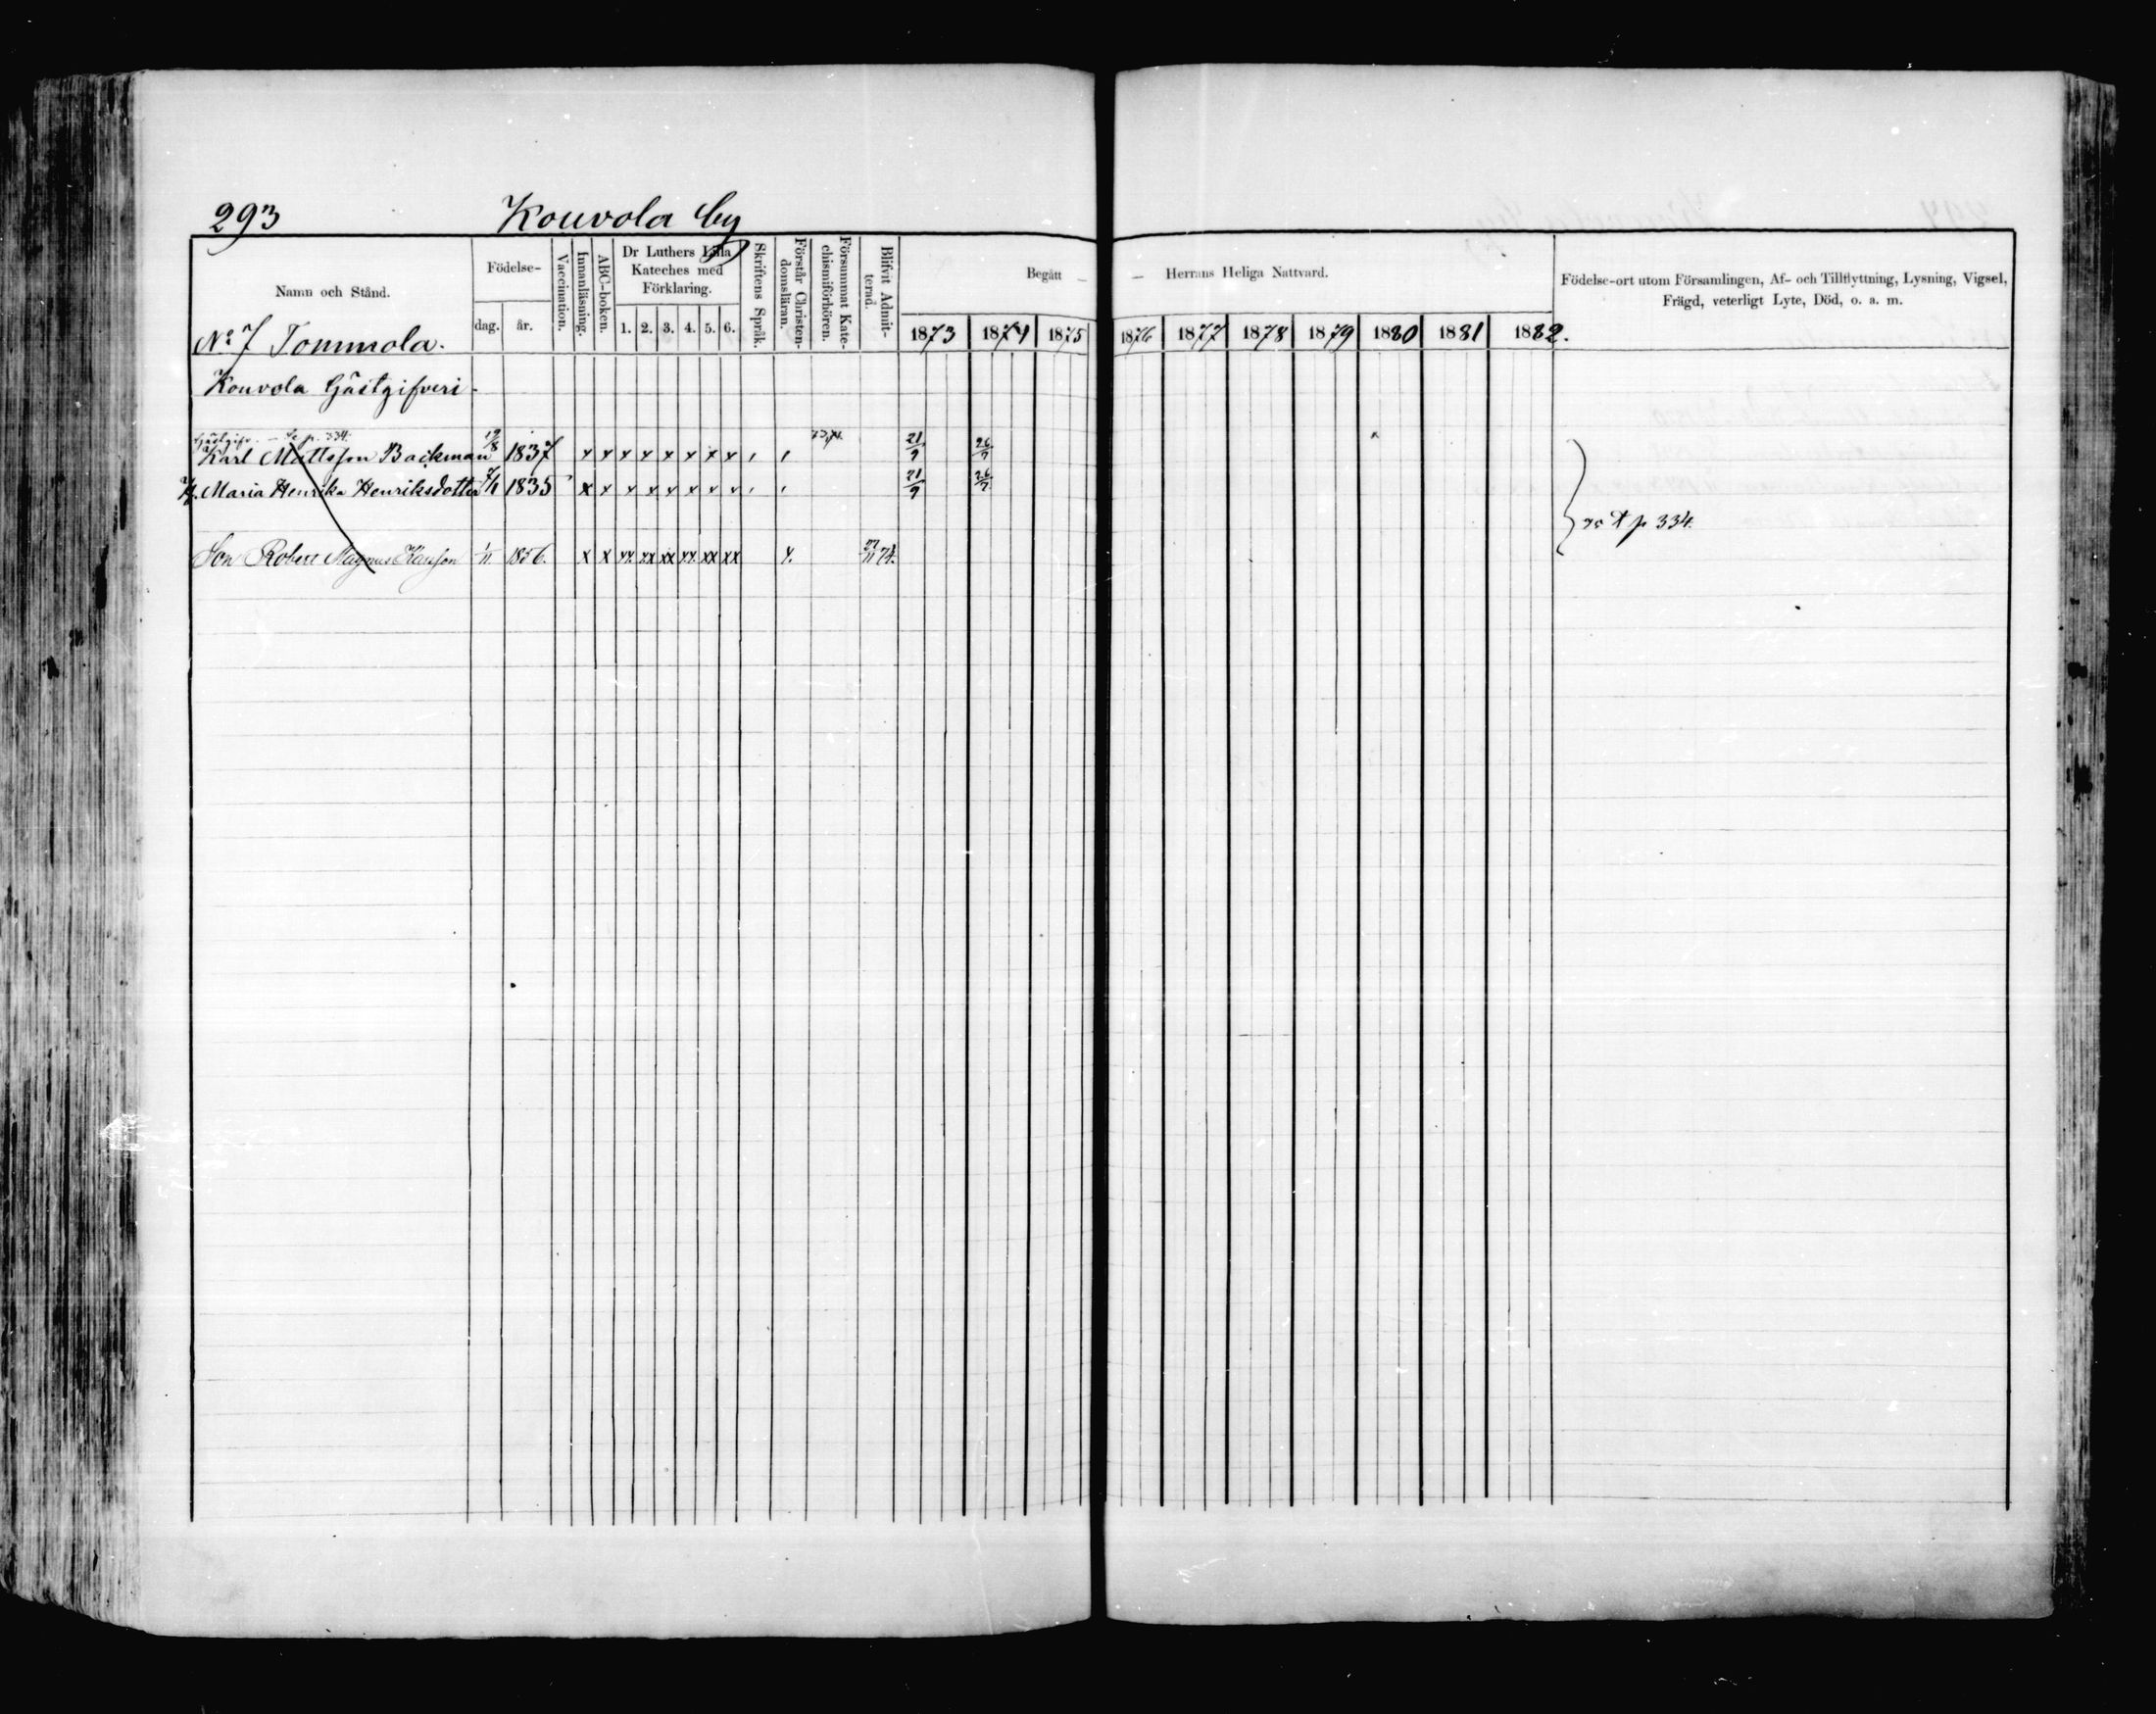 293 Kouvola by
Namn och Stånd.
Födelse-
dag. år.
Vaccination.
Innanläsning.
ABC-boken.
Dr Luthers Lilla
Kateches med
Förklaring.
1. 2. 3. 4. 5. 6.
Skriftens Språk.
Förstår Christen-
domsläran.
Försummat Kate-
chismiförhören.
Blifvit Admit-
terad.
Begått — — Herrans Heliga Nattvard.
1873 1874 1875 1876 1877 1878 1879 1880 1881 1882.
Födelse-ort utom Församlingen, Af- och Tillflyttning, Lysning, Vigsel,
Frägd, veterligt Lyte, Död, o. a. m.
No 7 Tommola.
Kouvola Gästgifveri.
Gästgifv. — Se p. 334.
Karl Mattsson Backman 19/8 1837 x x x x x x x x 73,74. 21/9 26/7
H. Maria Henrika Henriksdotter 7/1 1835 x x x x x x x x 21/9 26/7
75 p 334.
Son Robert Magnus Karlsson 1/11 1856. x x xx xx xx xx xx xx x. 22/11 74.